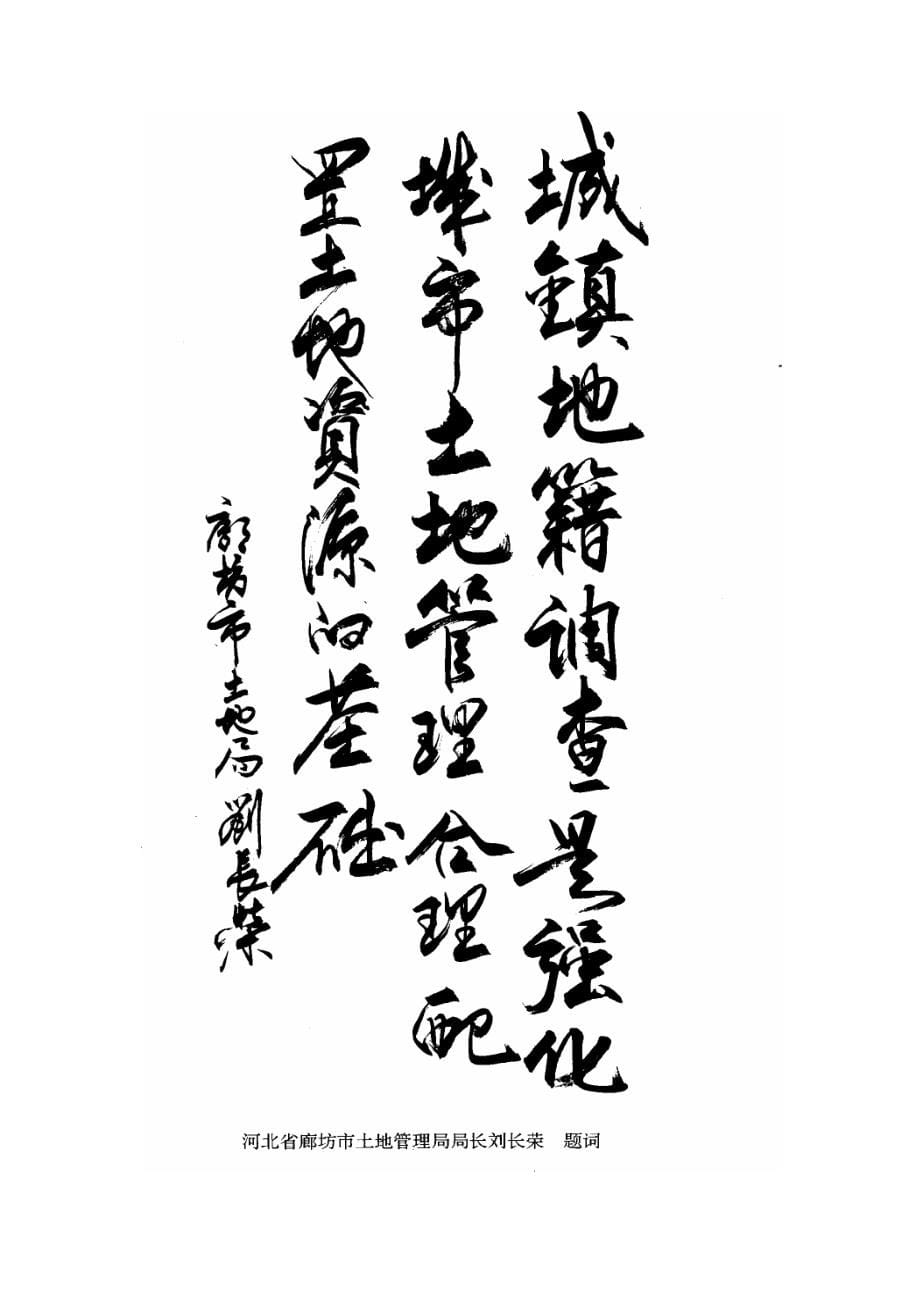 城鎮地籍调查是强化
城市土地管理合理配
置土地資源的基础
廊坊市土地局劉長荣
河北省廊坊市土地管理局局长刘长荣　题词